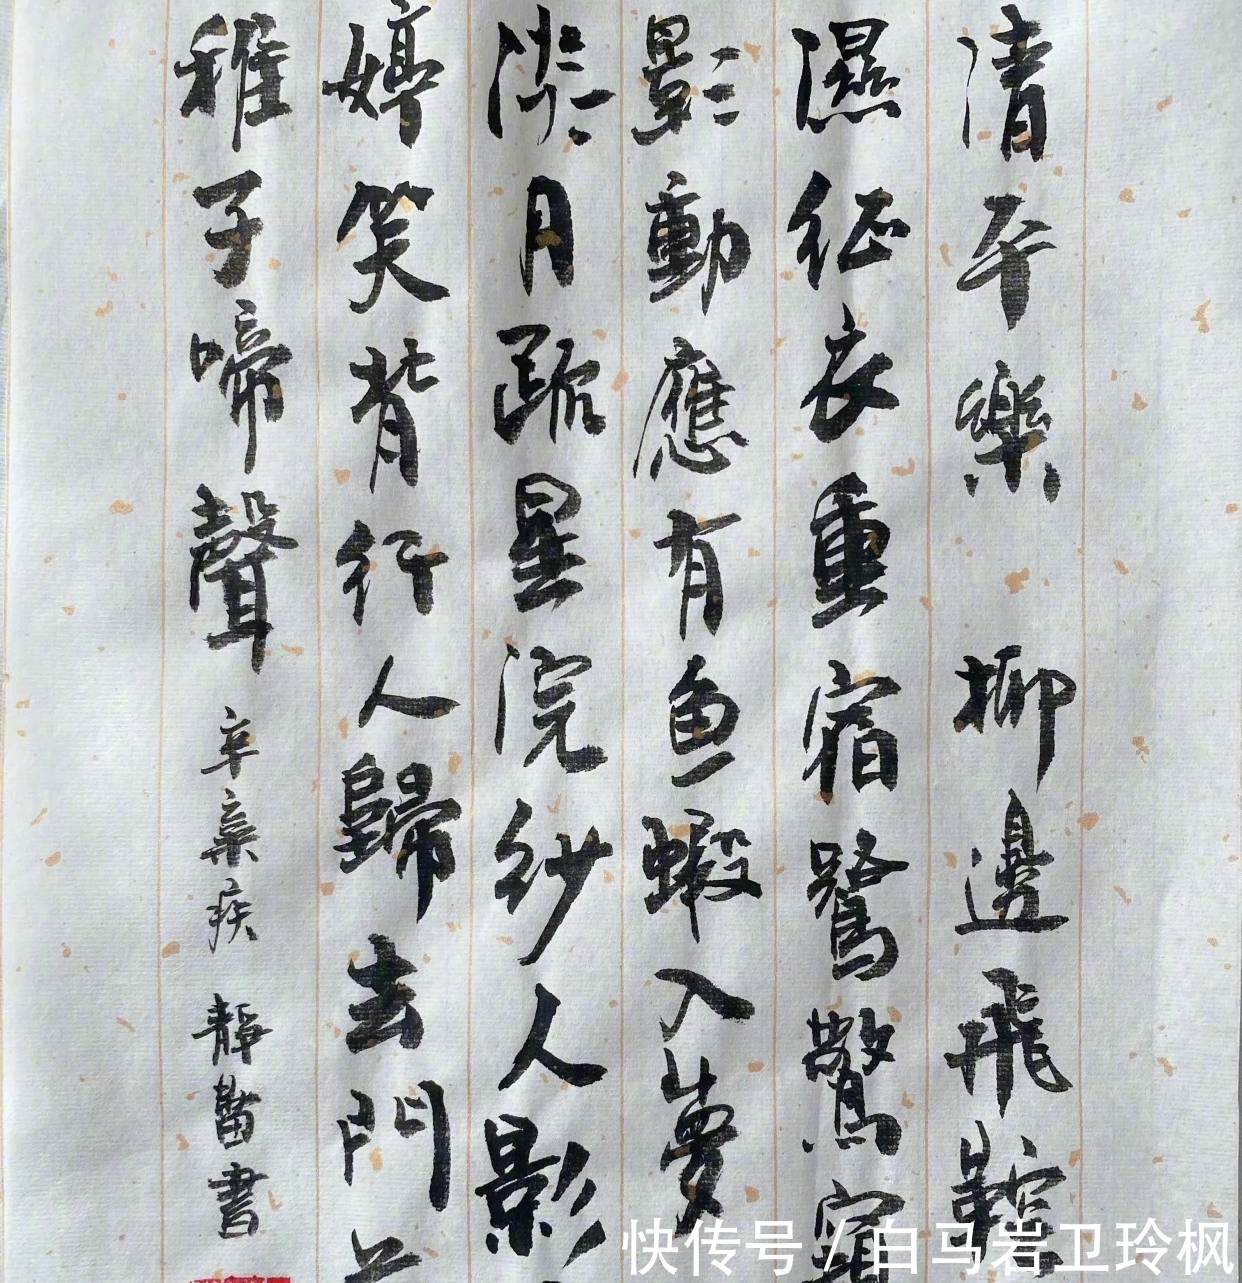 清平樂 柳邊飛鞚
濕征衣重宿鷺驚窺
影動應有鱼蝦入夢
淡月疏星浣紗人影
婷笑背行人歸去門
稚子啼聲 辛棄疾 靜書
快传号 / 白马岩卫玲枫